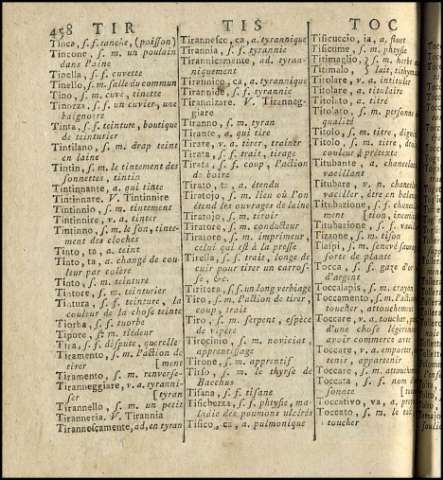 458 TIR
TIS
TOC
Tinca, s. f. tanche, (poisson)
Tincone, s. m. un poulain
dans l'aine
Tinella, s. f. cuvette
Tinello, s. m. salle du commun
Tino, s. m. cuve, tinette
Tinozza, s. f. un cuvier, une
baignoire
Tinta, s. f. teinture, boutique
de teinturier
Tintilano, s. m. drap teint
en laine
Tintin, s. m. le tintement des
sonnettes, tintin
Tintinnante, a. qui tinte
Tintinnare. V. Tintinnire
Tintinnio, s. m. tintement
Tintinnire, v. a. tinter
Tintinno, s. m. le son, tinte-
ment des cloches
Tinto, ta, a. teint
Tinto, ta, a. changé de cou-
leur par colère
Tinto, s. m. teinture
Tintore, s. m. teinturier
Tintura, s. f. teinture, la
couleur de la chose teinte
Tiorba, s. f. tuorbe
Tipore, s. m. tiédeur
Tira, s. f. dispute, querelle
Tiramento, s. m. l'action de
tirer [ment
Tiramento, s. m. renverse-
Tiranneggiare, v. a. tyranni-
ser [tyran
Tirannello, s. m. un petit
Tiranneria. V. Tirannia
Tirannescamente, ad. en tyran
Tirannesco, ca, a. tyrannique
Tirannia, s. f. tyrannie
Tirannicamente, ad. tyran-
niquement
Tirannico, ca, a. tyrannique
Tirannide, s. f. tyrannie
Tirannizare. V. Tiranneg-
giare
Tiranno, s. m. tyran
Tirante, a. qui tire
Tirare, v. a. tirer, trainer
Tirata, s. f. trait, tirage
Tirata, s. f. coup, l'action
de boire
Tirato, ta, a. étendu
Tiratojo, s. m. lieu où l'on
étend les ouvrages de laine
Tiratojo, s. m. tiroir
Tiratore, s. m. conducteur
Tiratore, s. m. imprimeur,
celui qui est à la presse
Tirella, s. f. trait, longe de
cuir pour tirer un carros-
se, &c.
Tiritera, s. f. un long verbiage
Tiro, s. m. l'action de tirer,
coup, trait
Tiro, s. m. serpent, espèce
de vipère
Tirocinio, s. m. noviciat,
apprentissage
Tirone, s. m. apprentif
Tirso, s. m. le thyrse de
Bacchus
Tisana, s. f. tisane
Tisichezza, s. f. phtysie, ma-
ladie des poumons ulcérés
Tisico, ca, a. pulmonique
Tisicuccio, ia, a. fluet
Tisicume, s. m. phtysie
Timaglio, s. m. herbe
Titimalo, lait, tithym
Titolare, v. a. intitule
Titolare, a. titulaire
Titolato, a. titré
Titolato, s. m. personne
qualité
Titolo, s. m. titre, digni
Titolo, s. m. titre, dro
couleur & prétexte
Titubante, a. chancelan
vacillant
Titubare, v. n. chancele
vaciller, être en balan
Titubazione, s. f. chance
ment [tion, incerti
Titubazione, s. f. vacilla
Tizzone, s. m. tison
Tlaspi, s. m. senevé sauva
sorte de plante
Tocca, s. f. gaze d'or
d'argent
Toccalapis, s. m. crayon
Toccamento, s. m. l'action
toucher, attouchement
Toccare, v. a. toucher, par
d'une chose légèrem
avoir commerce avec
Toccare, v. a. emporter,
tenir, appartenir
Toccare, s. m. attouchem
Toccata, s. f.
sonate
Toccativo, va, a.
Toccato, s. m. le
toucher